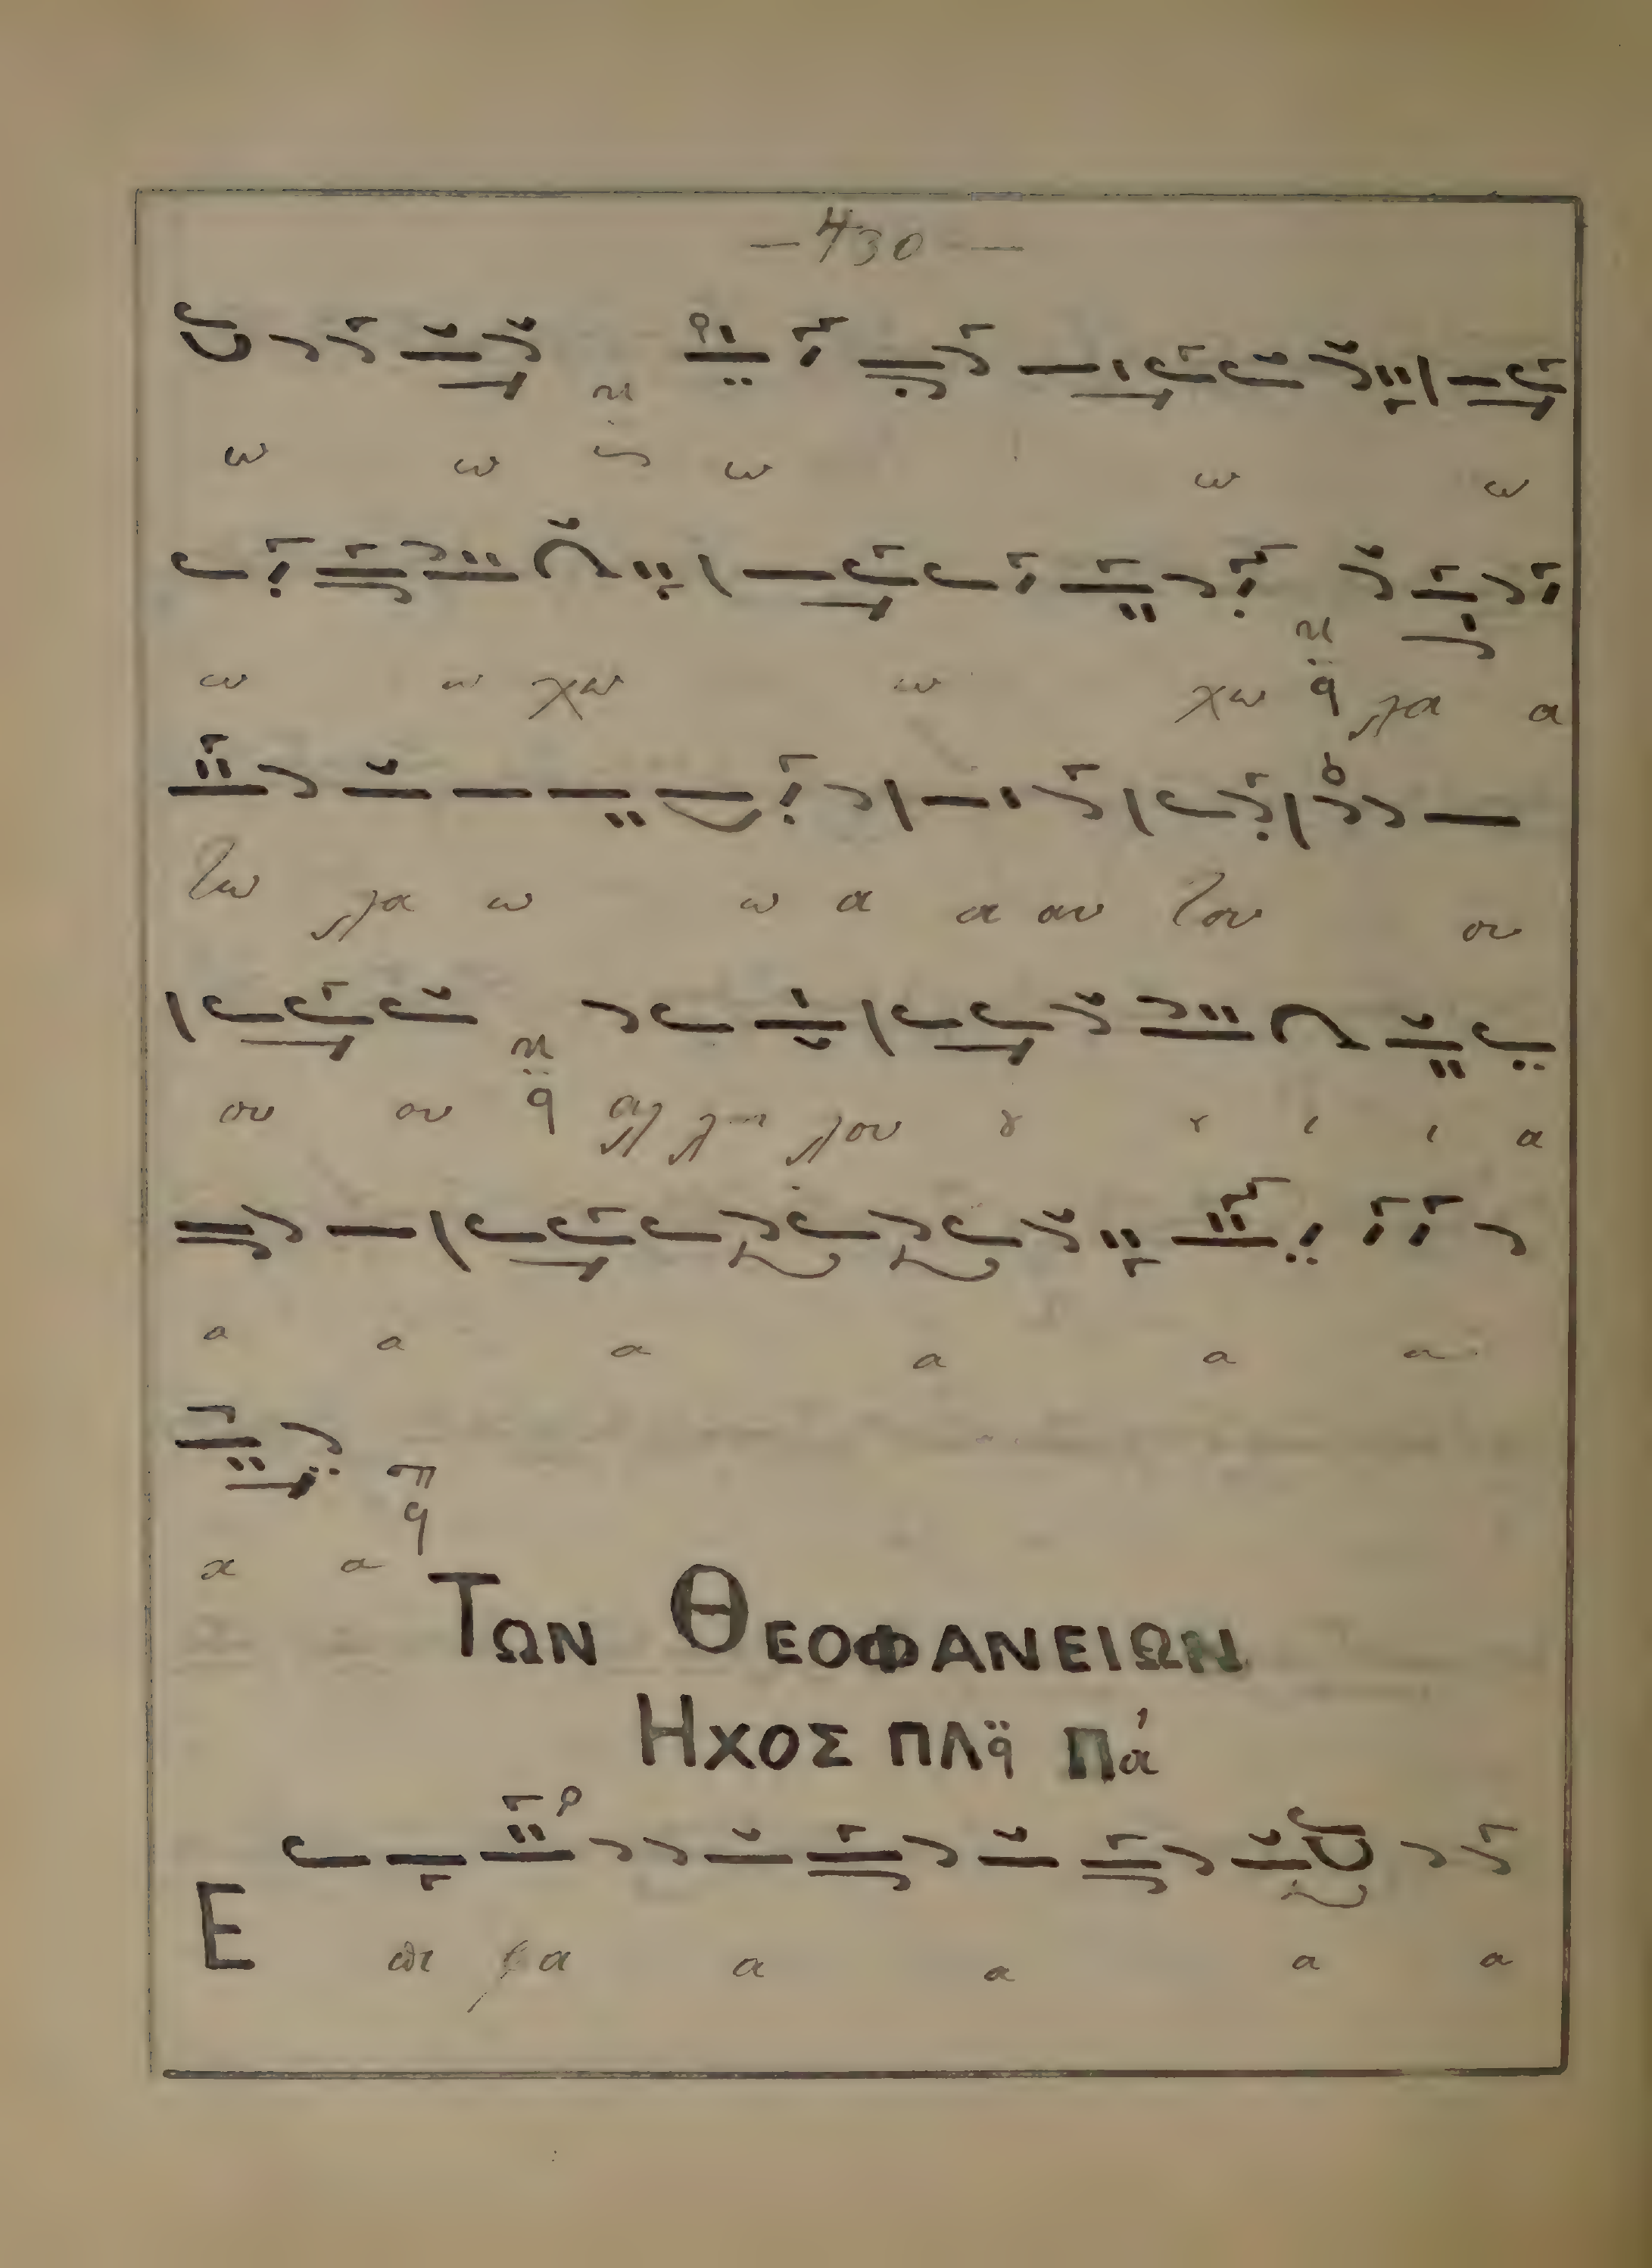 — 430 —
ω ω ω ω ω
ω ω χω ω χω λα α
τω λα ω ω α α αυ του ου
ου ου αλ λη λου ι ι α
α α α α α α
α α
ΤΩΝ ΘΕΟΦΑΝΕΙΩΝ
ΗΧΟΣ ΠΛ q̈ Πα
Ε πι φα α α α α